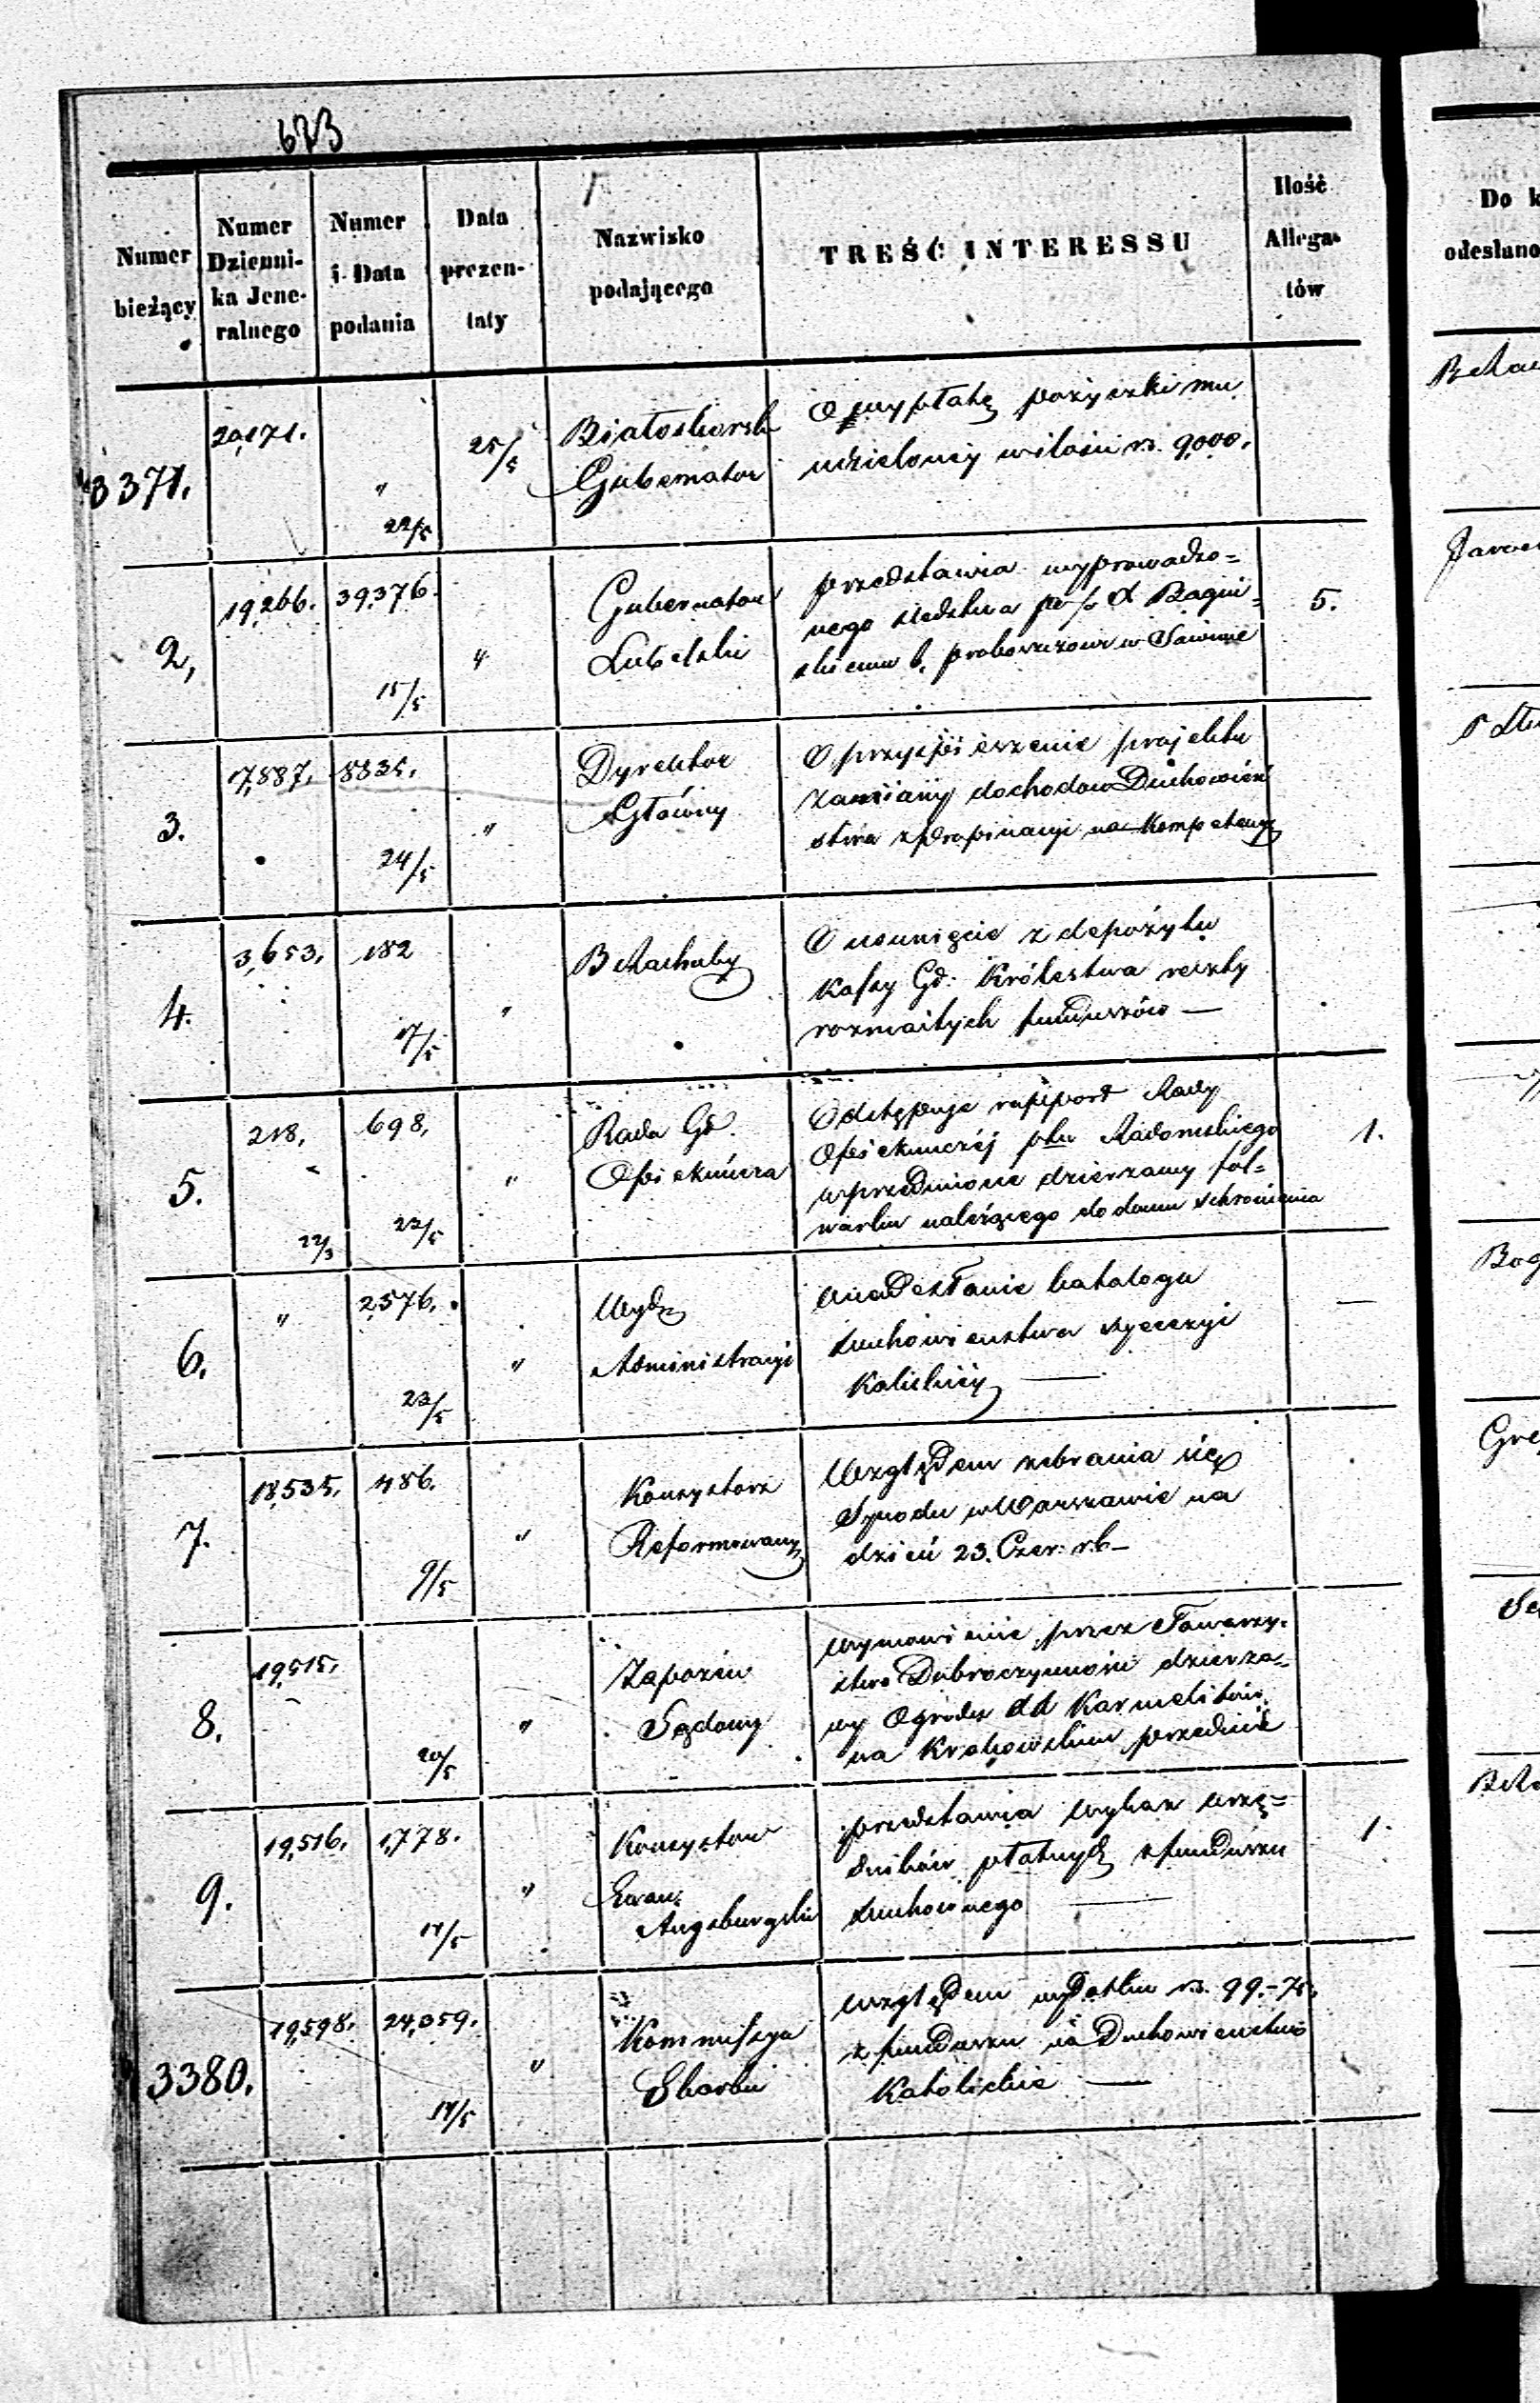 673
Numer bieżący
Numer Dzienni- ka Jene- ralnego
Numer i Data podania
Data prezen- taty
Nazwisko podającego
TREŚĆ INTERESSU
Ilość Allega- tów
3371.
20,171.
"
22/5
25/5
Białoskorski
Gubernator
O wypłatę pożyczki mu
udzielonej w ilości rs. 9,000.
2,
19,266.
39,376.
15/5
"
Gubernator
Lubelski
przedstawia wyprowadzo=
nego śledztwa X Bagiń=
skiemu b. proboszczowi w Sawinie
5.
3.
17,887.
8835.
24/5
"
Dyrektor
Główny
O przyspieszenie projektu
zamiany dochodów Duchowień
stwa z propinacyi na kompetencyę
4.
3,653.
182
17/5
"
B Rachuby
O usunięcie z depozytu
Kassy Gł: Królestwa reszty
rozmaitych funduszów —
5.
218.
22/3
698.
22/5
"
Rada Gł.
Opiekuńcza
Odstępuje rapport Rady
Opiekuńczéj ptu Radomskiego
w przedmiocie dzierżawy fol=
warku należącego do domu schronienia
1.
6.
"
2,576.
23/5
"
Wydz
Administracyi
o nadesłanie katalogu
duchowieństwa dyecezyi
Kaliskiéj —
—
7.
18,535.
486.
9/5
"
Konsystorz
Reformowany
Względem zebrania się
Synodu w Warszawie na
dzień 23. Czer: rb —
8.
19,515.
20/5
"
Zapozew
Sądowy
wymówienie przez Towarzy-
stwo Dobroczynności dzierża-
wy Ogrodu XX Karmelitów
na Krakowskim przedmie
9.
19,516.
1,778.
17/5
"
Konsystorz
Ewan:
Augsburgski
przedstawia wykaz urzę=
dników płatnych z funduszu
duchownego —
1.
3380.
19,598.
24,359.
17/5
"
Kommissya
Skarbu
względem wydatku rs. 99.-75.
z funduszu na Duchowieństwo
Katolickie —
Do k
odesłano